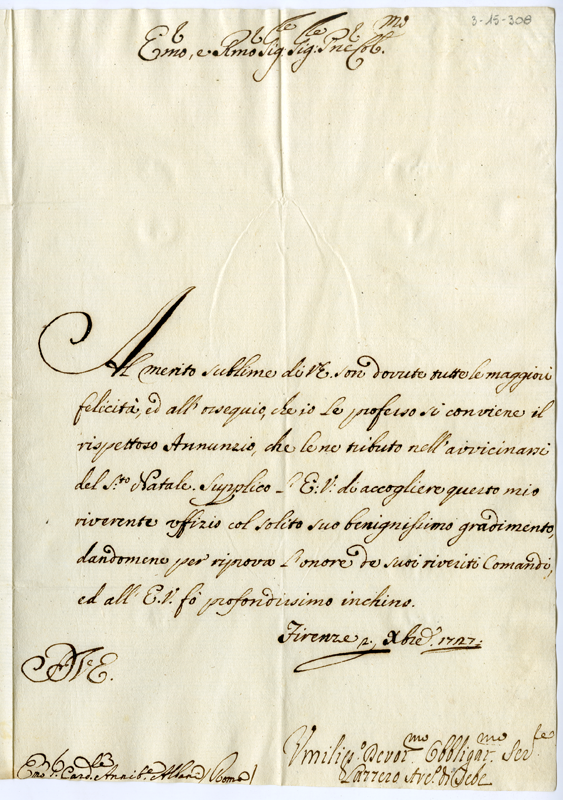 3-15-308
Emo, e Rmo Sig.re Sig.re Pne Col.mo
Al merito sublime di VE. son dovute tutte le maggiori
felicità, ed all' ossequio, che io Le professo si conviene il
rispettoso Annunzio, che le ne tributo nell' avvicinarsi
del S.to Natale. Supplico L' E: V. di accogliere questo mio
riverente uffizio col solito suo benignissimo gradimento,
dandomene per riprova l' onore de suoi riveriti Comandi,
ed all' E.V. fò profondissimo inchino.
Firenze 2. Xbre 1727.
D VE.
Vmiliss.o Devot.mo Obbligat.mo Ser.re
Em.o Sr. Card.le Annib.e Albani (Roma)